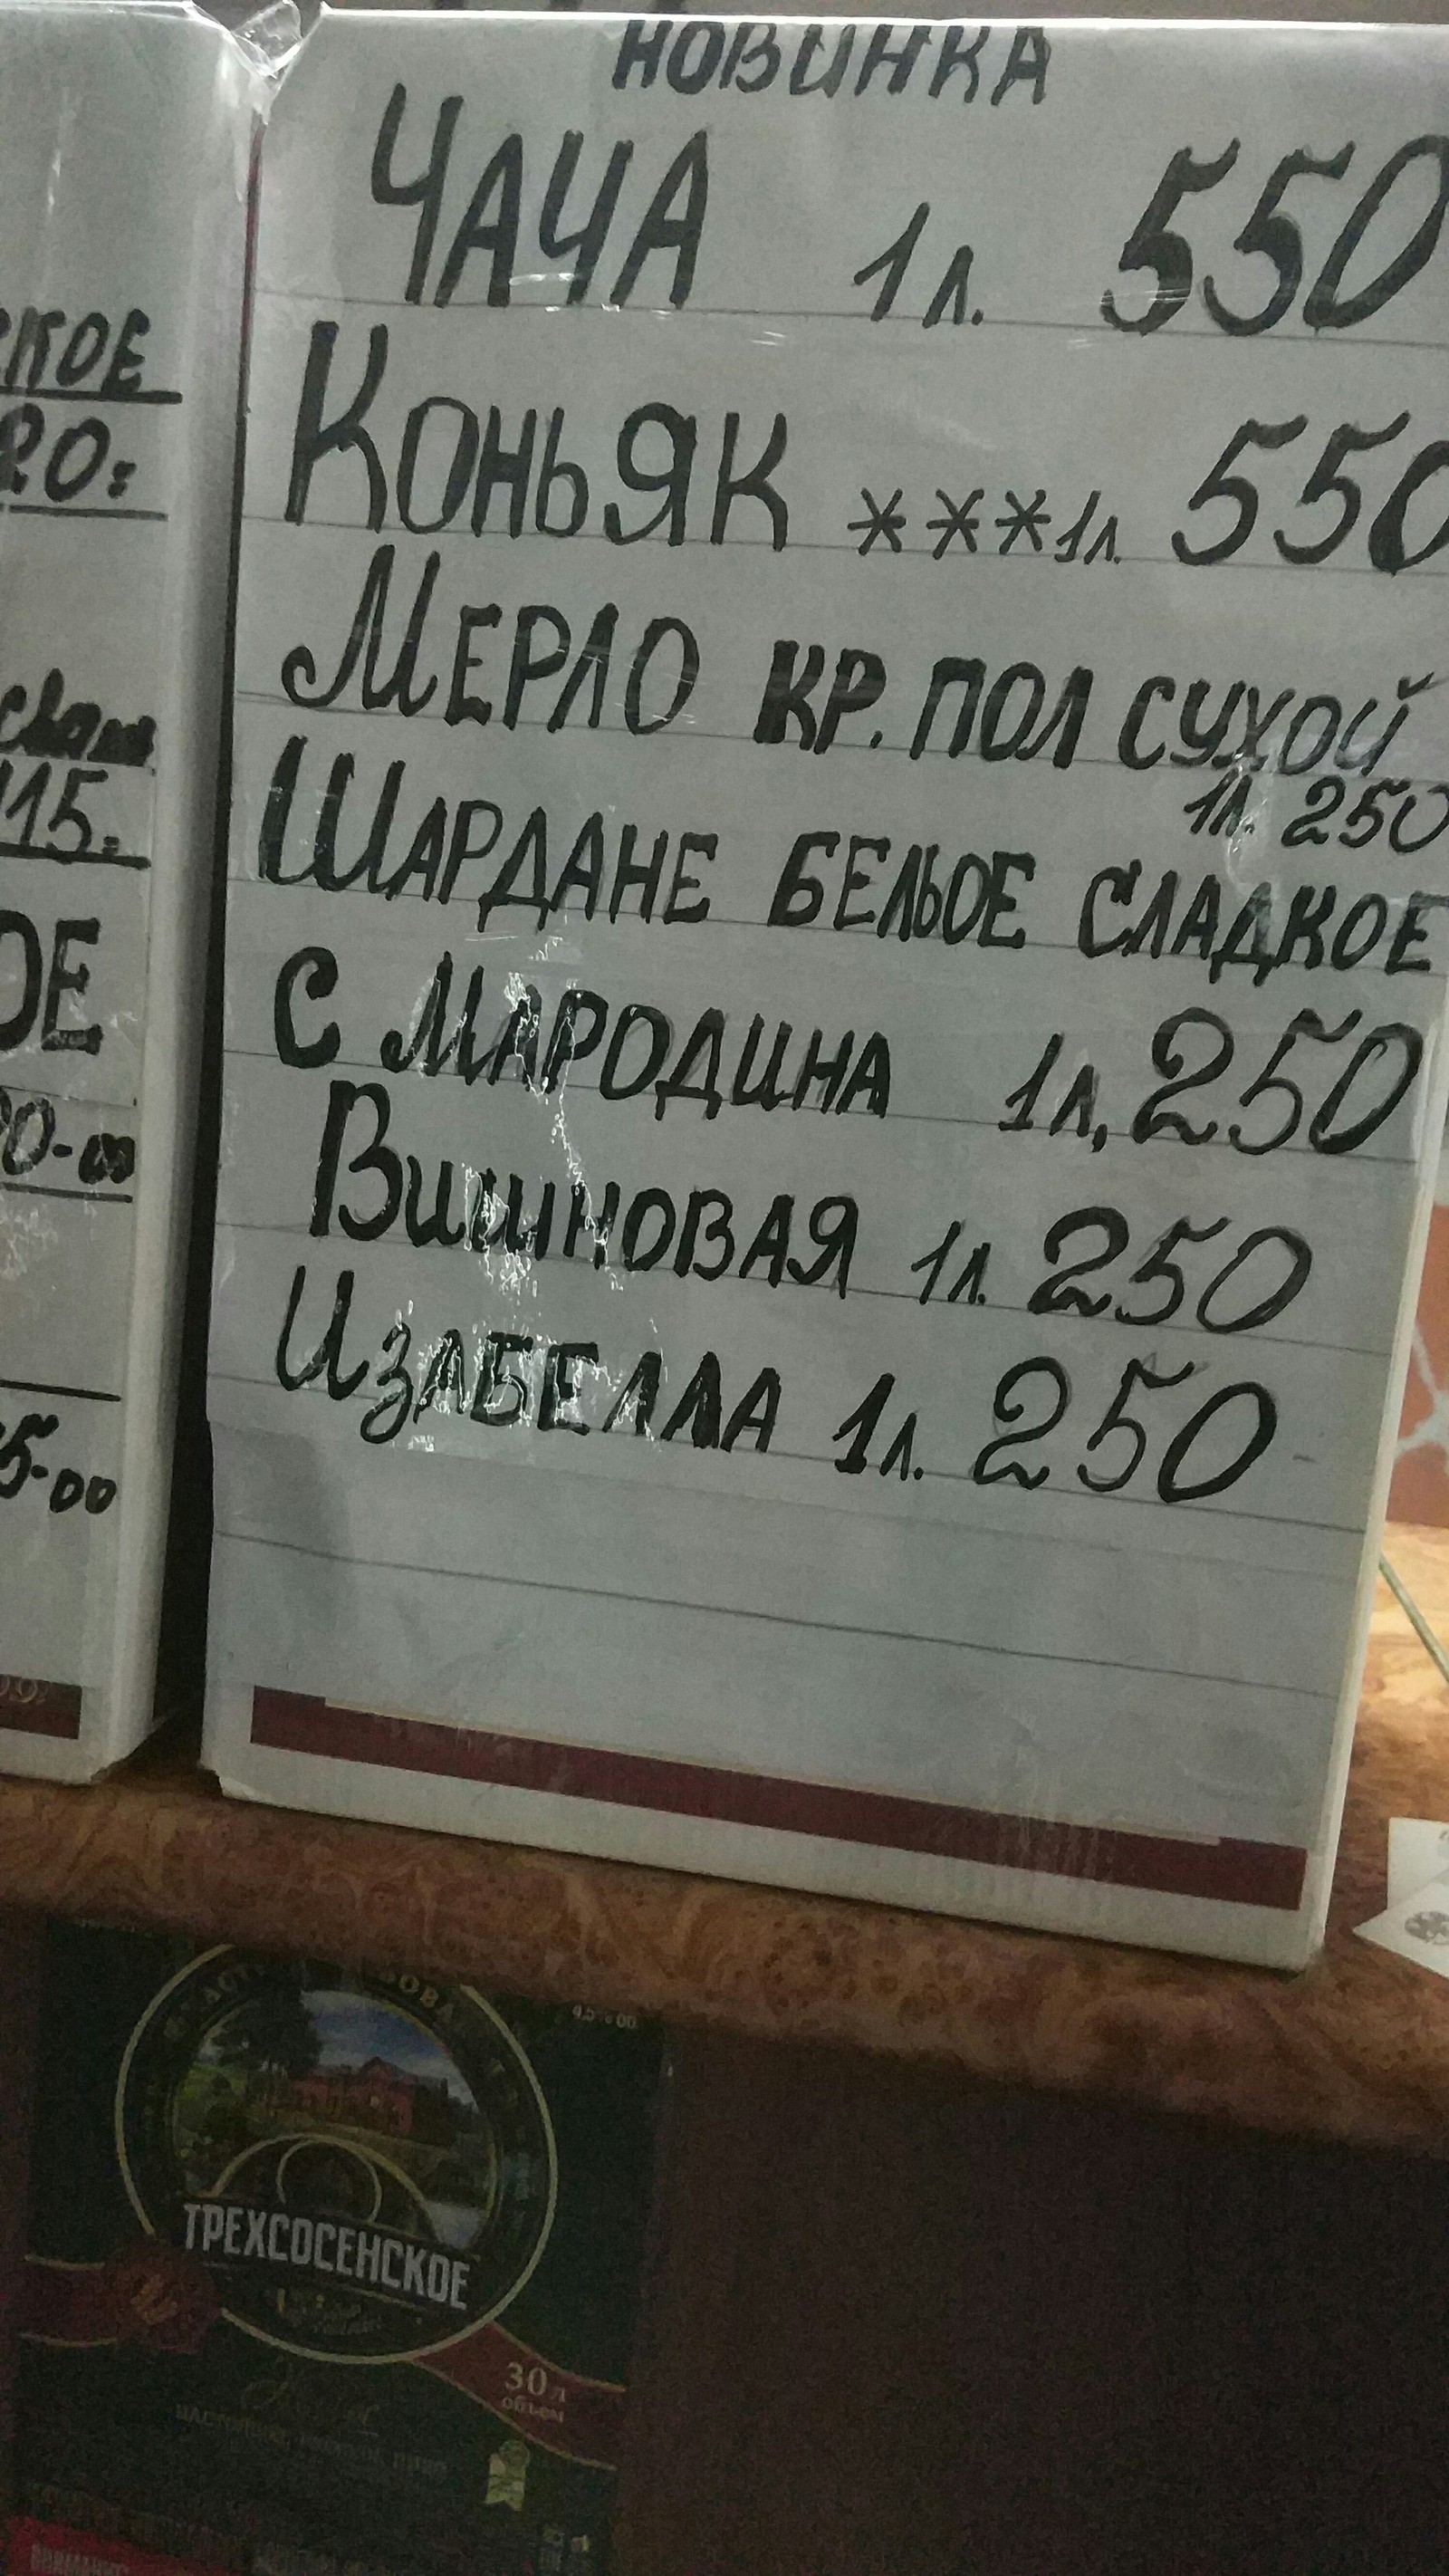 НОВИНКА
ЧАЧА 1л. 550
КОНЬЯК ***1л. 550
МЕРЛО КР. ПОЛ СУХОЙ
1л. 250
ШАРДАНЕ БЕЛЬОЕ СЛАДКОЕ
С МАРОДИНА 1л, 250
ВИШНОВАЯ 1л. 250
ИЗАБЕЛЛА 1л. 250
СКОЕ
20=
115=
ОЕ
0-00
5-00
ТРЕХСОСЕНСКОЕ
30 л
объем